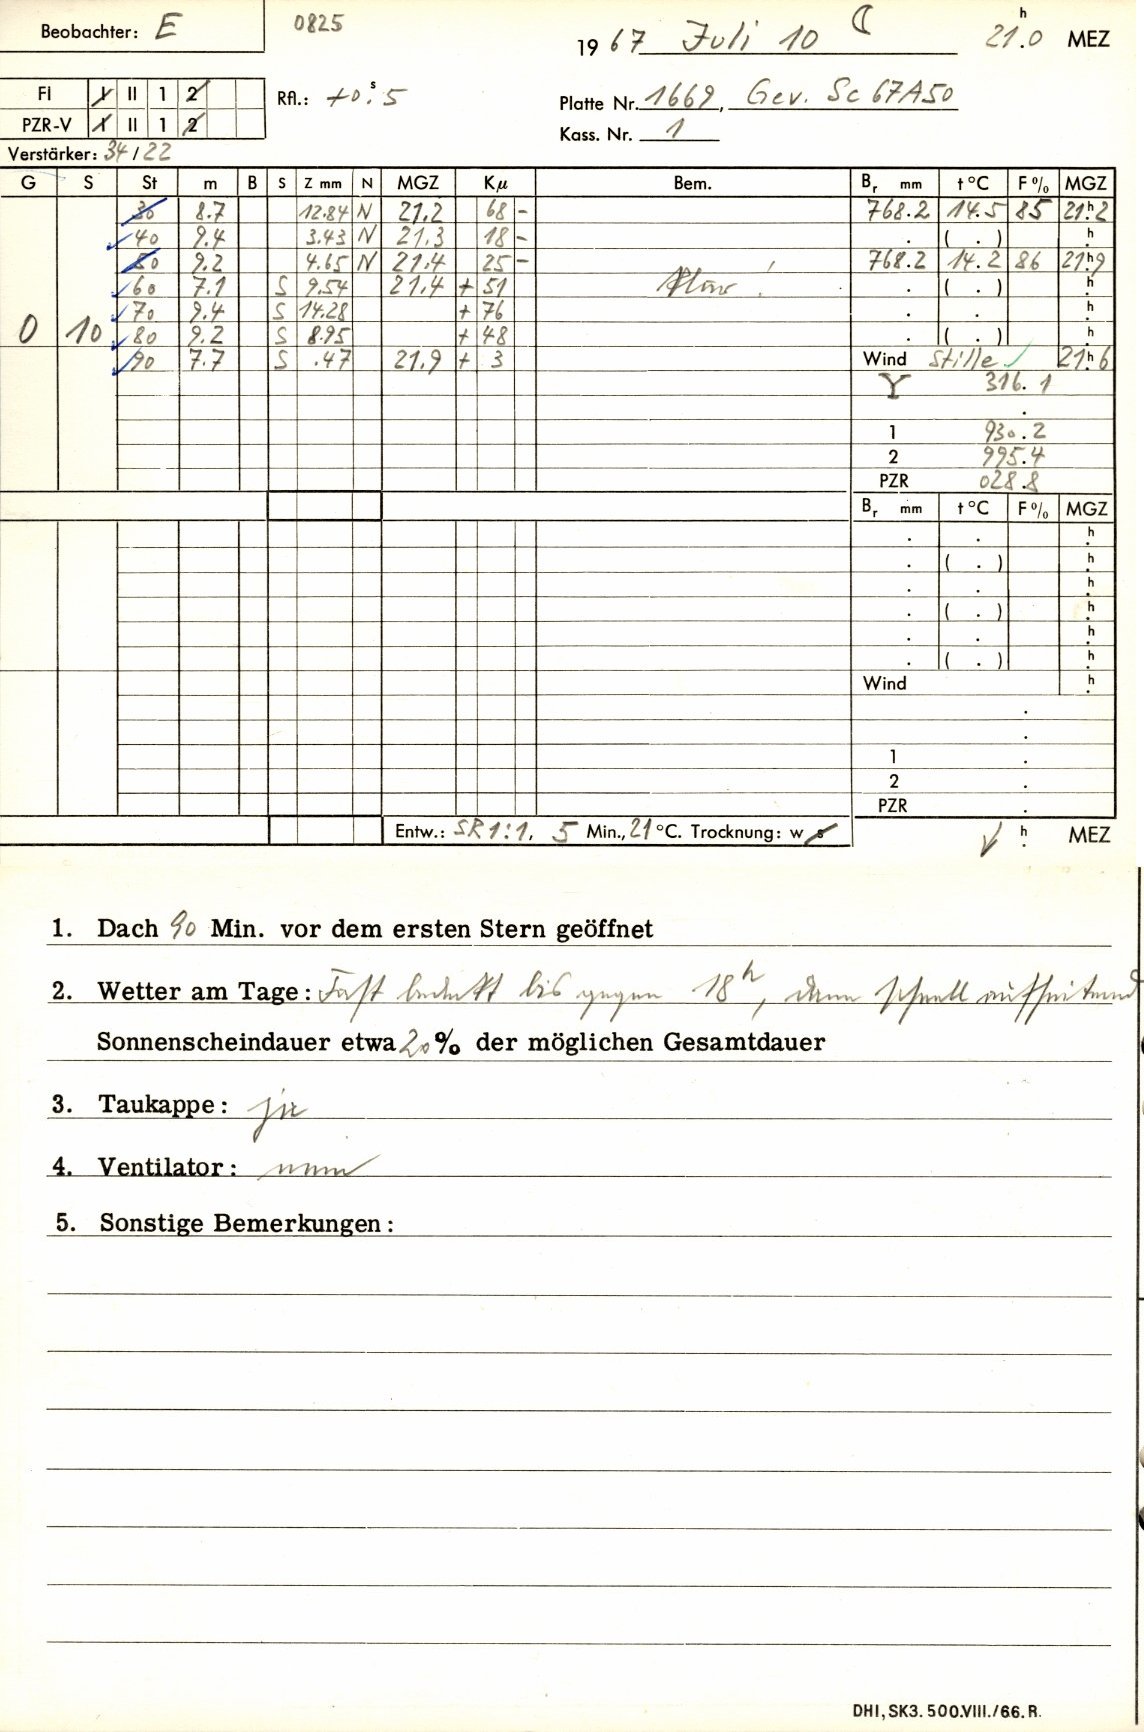 Beobachter: E 0825 1967 Juli 10 ☾ 21.0 h MEZ
FI I II 1 2 Rfl.: +0.s5 Platte Nr. 1669, Gev. Sc 67A50
PZR-V I II 1 2 Kass. Nr. 1
Verstärker: 34/22
G S St m B S Z mm N MGZ Kµ Bem. Br mm t °C F % MGZ
30 8.7 12.84 N 21.2 68 - 768.2 14.5 85 21.h2
40 9.4 3.43 N 21.3 18 - . ( . ) h.
50 9.2 4.65 N 21.4 25 - 768.2 14.2 86 21.h9
60 7.1 S 9.54 21.4 + 51 . ( . ) h.
70 9.4 S 14.28 + 76 . . h.
0 10 80 9.2 S 8.95 + 48 . ( . ) h.
90 7.7 S .47 21.9 + 3 Wind Stille 21.h6
Y 316.1
.
1 930.2
2 995.4
PZR 028.8
Br mm t °C F % MGZ
. . h.
. ( . ) h.
. . h.
. ( . ) h.
. . h.
. ( . ) h.
Wind h.
.
.
1 .
2 .
PZR .
Entw.: SR 1:1, 5 Min., 21 °C. Trocknung: w s h. MEZ
1. Dach 90 Min. vor dem ersten Stern geöffnet
2. Wetter am Tage: Fast bedeckt bis gegen 18h, dann schnell aufheiternd
Sonnenscheindauer etwa 20 % der möglichen Gesamtdauer
3. Taukappe: ja
4. Ventilator: nein
5. Sonstige Bemerkungen:
DHI, SK3. 500.VIII./66. R.